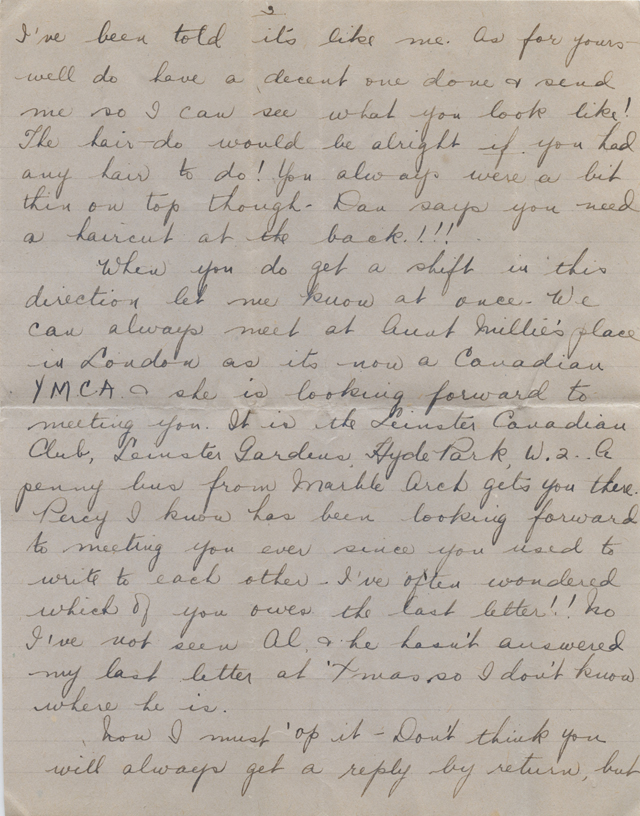 2
I've been told it's like me. As for yours-
well do have a decent one done & send
me so I can see what you look like!
The hair-do would be alright if you had
any hair to do! You always were a bit
thin on top though - Dan says you need
a haircut at the back.!!!
When you do get a shift in this
direction let me know at once - We
can always meet at Aunt Millie's place
in London as its now a Canadian
YMCA. & she is looking forward to
meeting you. It is the Leinster Canadian
Club, Leinster Gardens, Hyde Park, W.2.. A
penny bus from Marble Arch gets you there.
Percy I know has been looking forward
to meeting you ever since you used to
write to each other - I've often wondered
which of you owes the last letter!! No
I've not seen Al, & he hasn't answered
my last letter at 'Xmas, so I don't know
where he is.
Now I must 'op it - Don't think you
will always get a reply by return, but